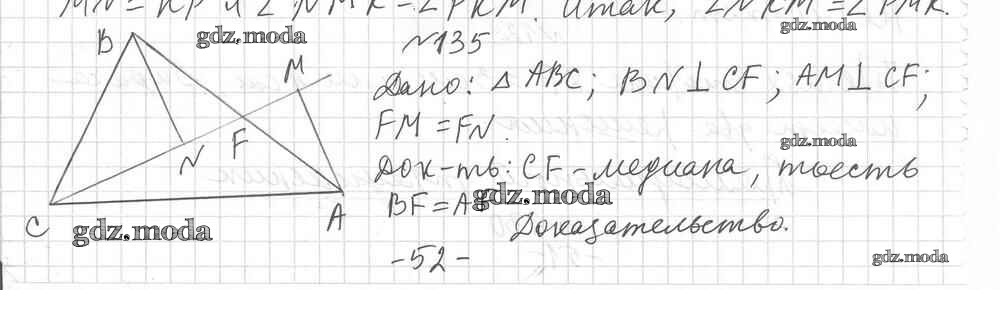 MN = KP и ∠ NMK = ∠ PKM. Итак, ∠ NKM = ∠ PMK.
gdz.moda
gdz.moda
№135
B
M
Дано: △ ABC; BN ⊥ CF; AM ⊥ CF;
FM = FN.
gdz.moda
N
F
Док-ть: CF - медиана, тоесть
gdz.moda
BF = A
C
gdz.moda
A
Доказательство.
-52-
gdz.moda